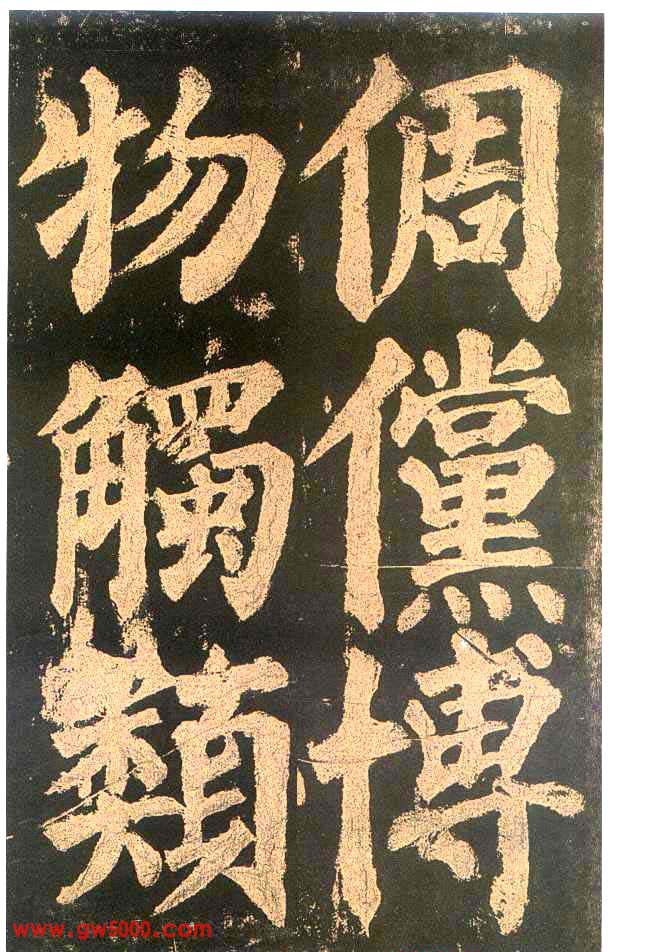 倜儻博
物觸類
www.gw5000.com